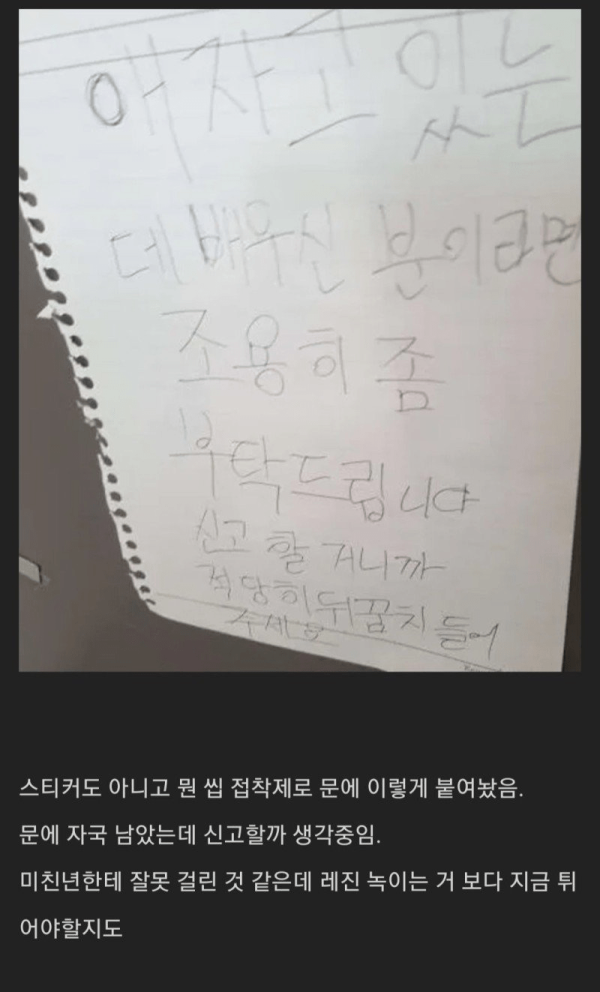 애자고 있는
데 배우신 분이라면
조용히 좀
부탁드립니다
신고 할 거니까
적당히 뒤꿈치 들어
주세요
스티커도 아니고 뭔 씹 접착제로 문에 이렇게 붙여놨음.
문에 자국 남았는데 신고할까 생각중임.
미친년한테 잘못 걸린 것 같은데 레진 녹이는 거 보다 지금 튀
어야할지도